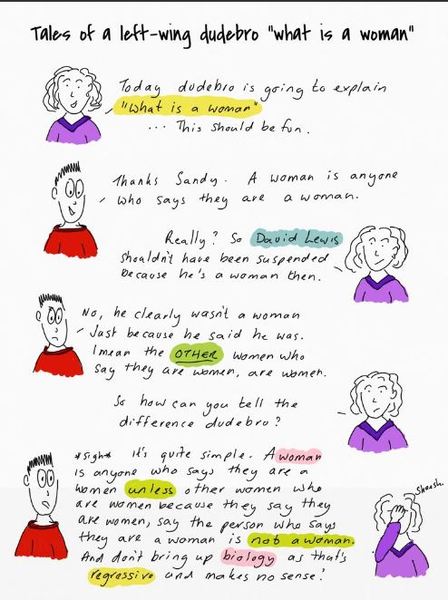 Tales of a left-wing dudebro "what is a woman"
Today dudebro is going to explain
"What is a woman"
... This should be fun.
Thanks Sandy. A woman is anyone
who says they are a woman.
Really? So David Lewis
shouldn't have been suspended
because he's a woman then.
No, he clearly wasn't a woman
Just because he said he was.
I mean the OTHER women who
say they are women, are women.
So how can you tell the
difference dudebro?
*sigh* it's quite simple. A woman
is anyone who says they are a
women unless other women who
are women because they say they
are women, say the person who says
they are a woman is not a woman.
And don't bring up biology as that's
regressive and makes no sense!
Sheesh.